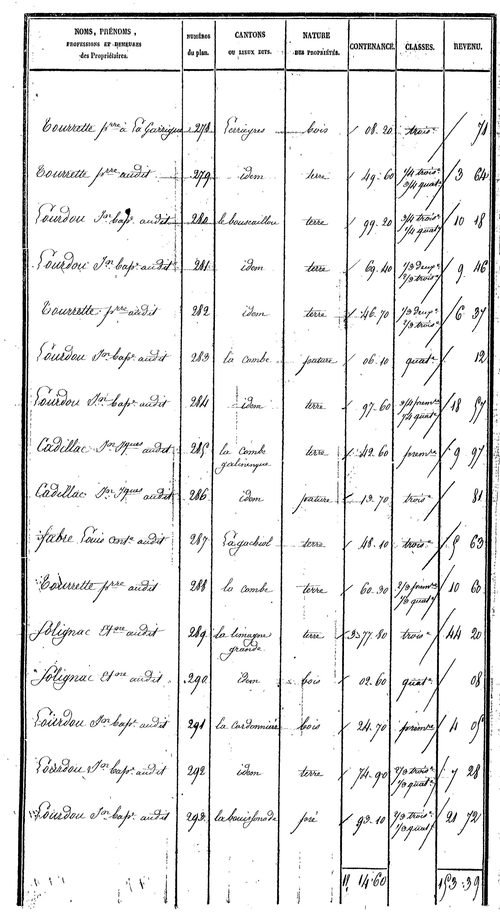 NOMS, PRÉNOMS, PROFESSIONS ET DEMEURES des Propriétaires. | NUMÉROS du plan. | CANTONS OU LIEUX DITS. | NATURE DES PROPRIÉTÉS. | CONTENANCE. | CLASSES. | REVENU.
Tourrette prre à La Garrigue 278 Terrayres bois 08.20 trois e 71
Tourrette prre audit 279 idem terre 49.60 1/4 trois e 3/4 quat e 3 64
Lourdou Jn bapt audit 280 le bouscaillou terre 99.20 3/4 trois e 1/4 quat e 10 18
Lourdou Jn bapt audit 281 idem terre 69.40 1/3 deux e 2/3 trois e 9 46
Tourrette prre audit 282 idem terre 46.70 1/3 deux e 2/3 trois e 6 37
Lourdou Jn bapt audit 283 la combe pature 06.10 quat e 12
Lourdou Jn bapt audit 284 idem terre 97.60 3/4 prem re 1/4 quat e 18 57
Cadillac Jn Jques audit 285 la combe galinenque terre 42.60 prem re 9 97
Cadillac Jn Jques audit 286 idem pature 13.70 trois e 81
fabre Louis audit 287 terre 48.10 trois e 5 63
Tourrette prre audit 288 la combe terre 60.30 2/3 prem re 1/3 quat e 10 60
Solignac Etne audit 289 la limagne grande terre 3 77.80 trois e 44 20
Solignac Etne audit 290 idem bois 02.60 quat e 08
Lourdou Jn bapt audit 291 la cardonnière bois 24.70 prem re 4 05
Lourdou Jn bapt audit 292 idem terre 74.90 2/3 trois e 1/3 quat e 7 28
Lourdou Jn bapt audit 293 la bouissonade pré 93.10 2/3 trois e 1/3 quat e 21 72
11 14.60 153.39